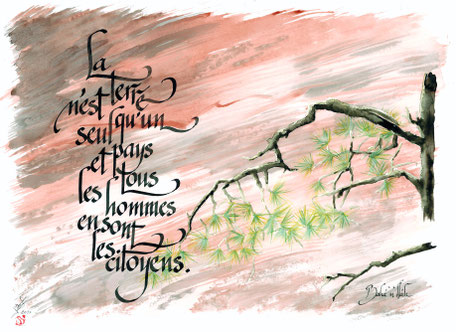 La
terre
n'est
qu'un
seul
pays
et tous
les hommes
en sont
les
citoyens.